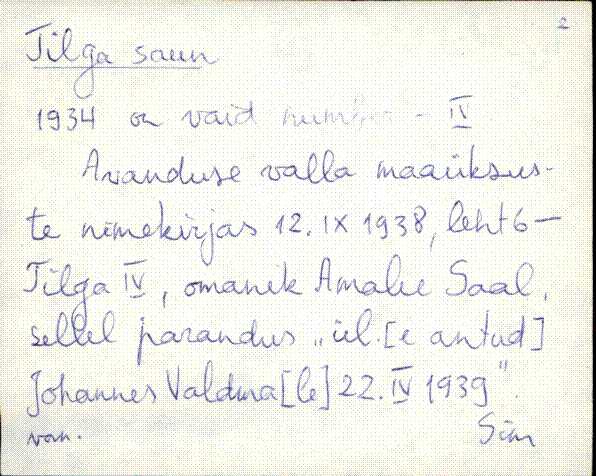 2
Tilga saun
1934 on vaid number - IV
Avanduse valla maaüksus-
te nimekirjas 12. IX 1938, leht 6 —
Tilga IV, omanik Amalie Saal,
sellel parandus „ül.[e antud]
Johannes Valdma[le] 22. IV 1939".
van. Sim